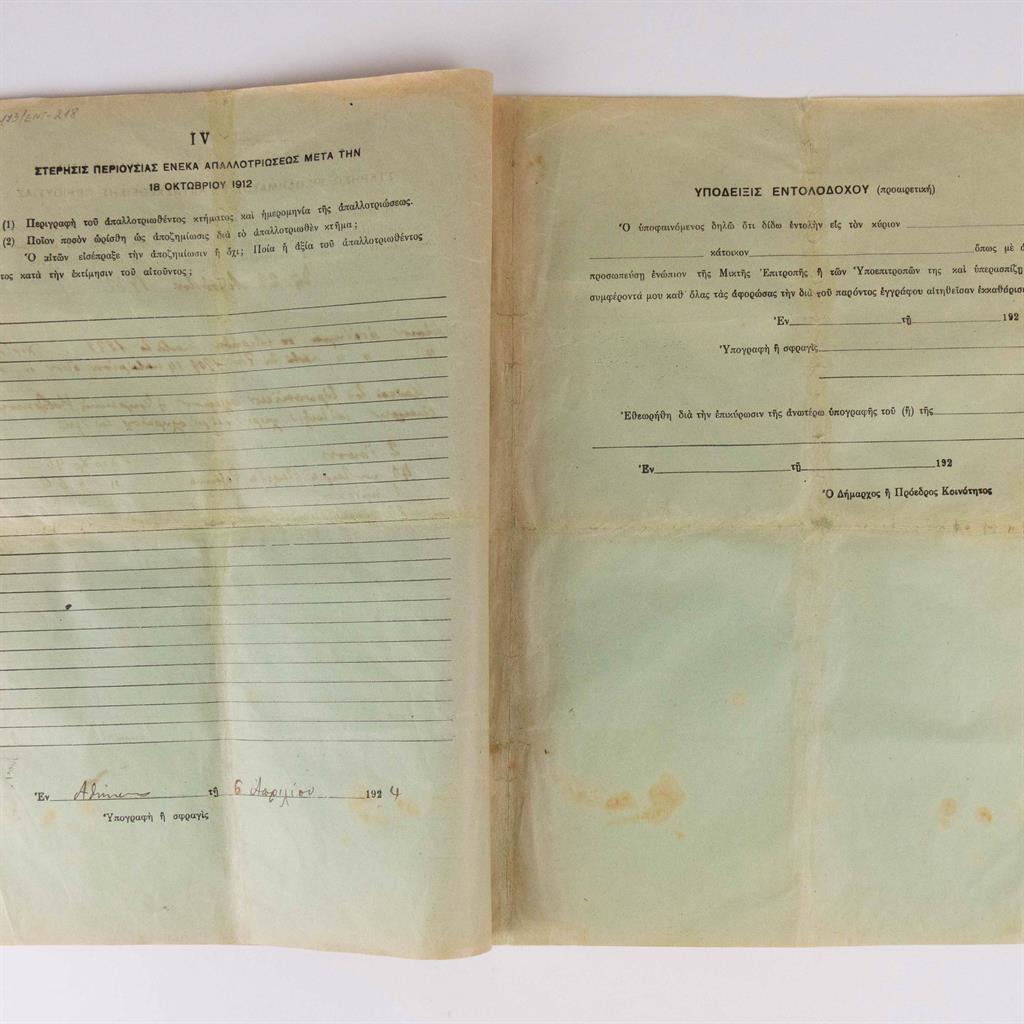 113/ΕΝΤ-218
IV
ΣΤΕΡΗΣΙΣ ΠΕΡΙΟΥΣΙΑΣ ΕΝΕΚΑ ΑΠΑΛΛΟΤΡΙΩΣΕΩΣ ΜΕΤΑ ΤΗΝ
18 ΟΚΤΩΒΡΙΟΥ 1912
(1) Περιγραφὴ τοῦ ἀπαλλοτριωθέντος κτήματος καὶ ἡμερομηνία τῆς ἀπαλλοτριώσεως.
(2) Ποῖον ποσὸν ὡρίσθη ὡς ἀποζημίωσις διὰ τὸ ἀπαλλοτριωθὲν κτῆμα;
Ὁ αἰτῶν εἰσέπραξε τὴν ἀποζημίωσιν ἢ ὄχι; Ποία ἡ ἀξία τοῦ ἀπαλλοτριωθέντος
τος κατὰ τὴν ἐκτίμησιν τοῦ αἰτοῦντος;
Ἐν Αθήναις τῇ 6 Ἀπριλίου 1924
Ὑπογραφὴ ἢ σφραγὶς
ΥΠΟΔΕΙΞΙΣ ΕΝΤΟΛΟΔΟΧΟΥ (προαιρετική)
Ὁ ὑποφαινόμενος δηλῶ ὅτι δίδω ἐντολὴν εἰς τὸν κύριον
κάτοικον ὅπως μὲ
προσωπεύσῃ ἐνώπιον τῆς Μικτῆς Ἐπιτροπῆς ἢ τῶν Ὑποεπιτροπῶν της καὶ ὑπερασπίζῃ
συμφέροντά μου καθ᾽ ὅλας τὰς ἀφορώσας τὴν διὰ τοῦ παρόντος ἐγγράφου αἰτηθεῖσαν ἐκκαθάρισι
Ἐν τῇ 192
Ὑπογραφὴ ἢ σφραγὶς
Ἐθεωρήθη διὰ τὴν ἐπικύρωσιν τῆς ἀνωτέρω ὑπογραφῆς τοῦ (ἢ) τῆς
Ἐν τῇ 192
Ὁ Δήμαρχος ἢ Πρόεδρος Κοινότητος